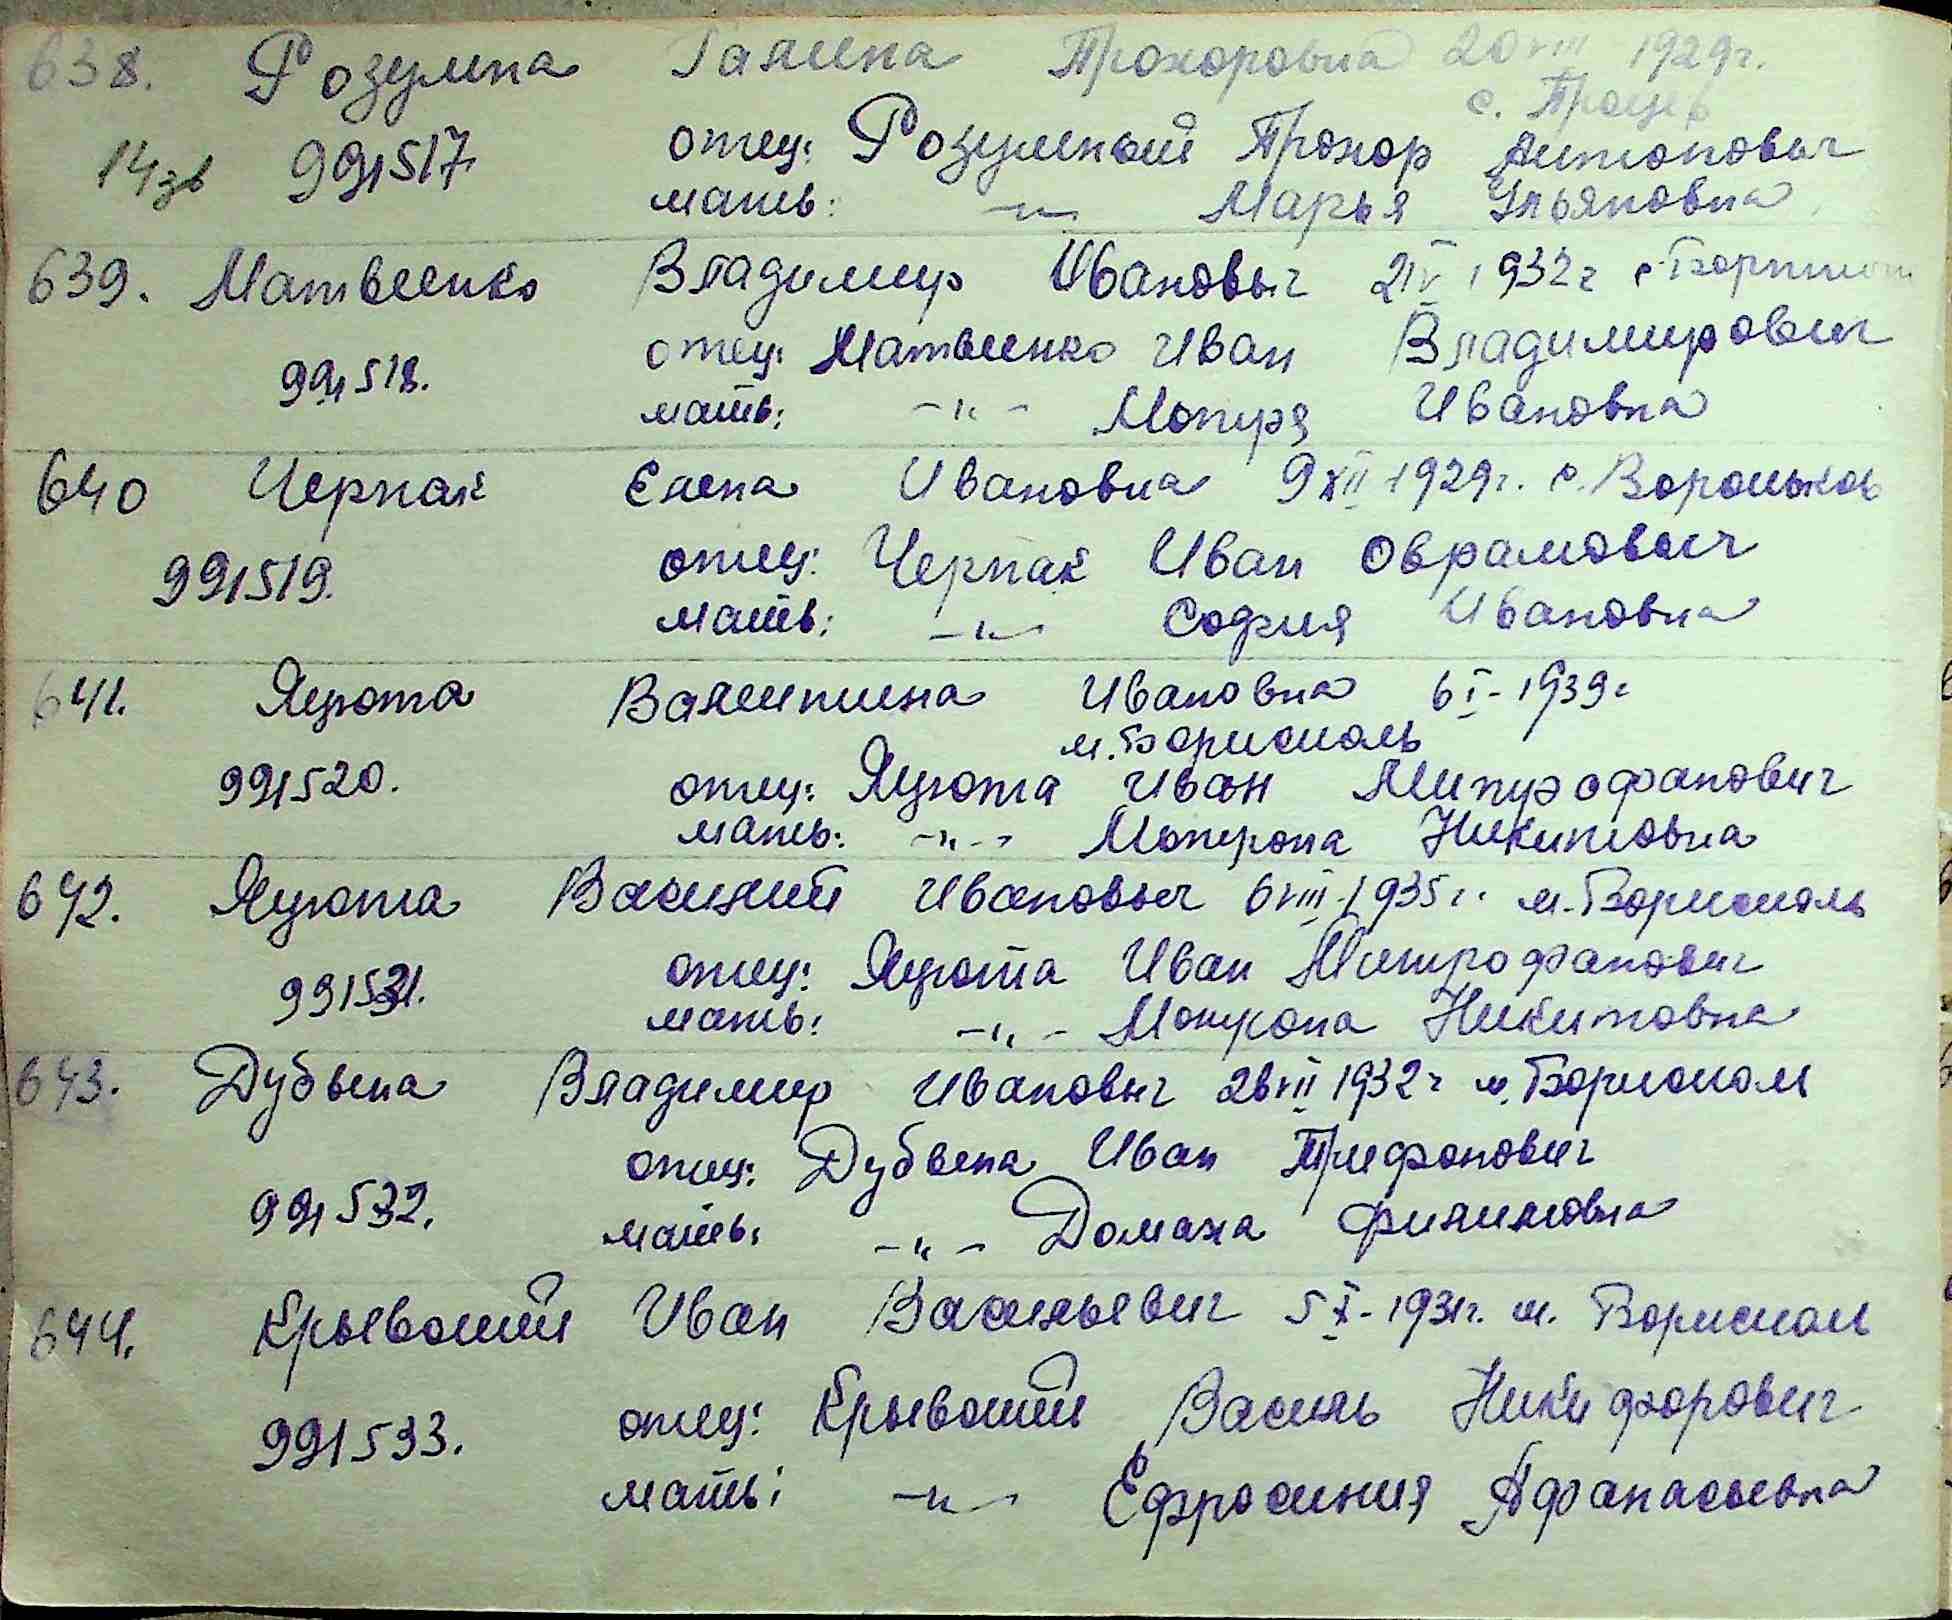 638. Розумна Галина Прохоровна 20 VIII 1929г.
с. Процев
14зв 991517 отец: Розумный Прохор Антонович
мать: -"- Марья Ульяновна
639. Матвеенко Владимир Ивановыч 2 IV 1932г с.
991518. отец: Матвеенко Иван Владимировыч
мать: -"- Мотря Ивановна
640 Черпак Елена Ивановна 9 XII 1929г. с. Вороньков
991519. отец: Черпак Иван Оврамовыч
мать: -"- София Ивановна
641. Ягрота Валентина Ивановна 6 I - 1939г
м. Борисполь
991520. отец: Ягрота Иван Митрофанович
мать: -"- Мотрона Никитовна
642. Ягрота Василий Ивановыч 6 VIII - 1935г. м. Борисполь
991531. отец: Ягрота Иван Митрофанович
мать: -"- Мотрона Никитовна
643. Дубвена Владимир Ивановыч 28 VII 1932г м. Борисполь
991532. отец: Дубвена Иван Трифонович
мать: -"- Домаха Филиповна
644. Крывоший Иван Васильевич 5 X - 1931г. м. Борисполь
991533. отец: Крывоший Василь Никифорович
мать: -"- Ефросиния Афанасьевна